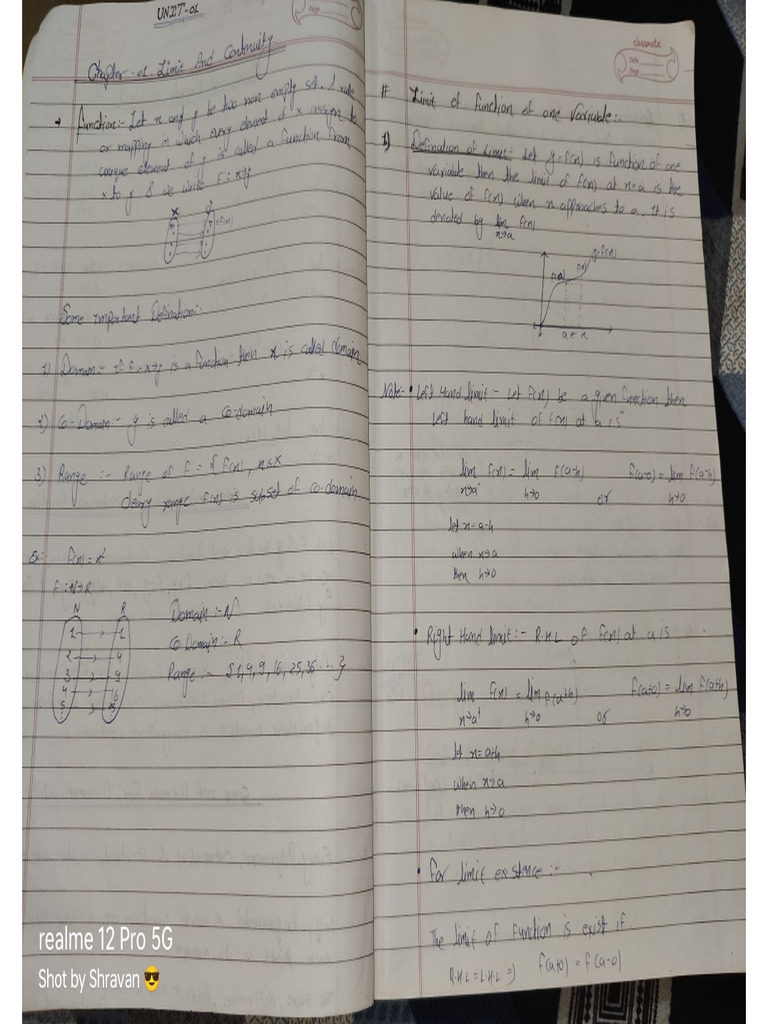 UNIT-01
Chapter -01. Limit And Continuity
→ Function:- Let x and y be two non empty set. A rule
or mapping in which every element of x assign to
unique element of y is called a function from
x to y & we write F: x→y
x y
F(x)
Some important Defination:-
1) Domain:- If F:x→y is a function then x is called domain
2) Co-Domain:- y is called a co-domain
3) Range :- Range of F = { F(x), x∈x
cleary range F(x) is subset of co-domain
Ex:- F(x) = x²
F: N→R
N R
1 → 1
2 → 4
3 → 9
4 → 16
5 → 25
Domain :- N
Co Domain :- R
Range :- {1,4,9,16,25,36 ... }
classmate
Date
Page
# Limit of function of one variable:-
1) Defination of Limit:- Let y=F(x) is function of one
variable then the limit of F(x) at x=a is the
value of F(x) when x approaches to a. It is
denoted by lim F(x)
x→a
y=F(x)
F(a) F(x)
a ← x
Note:- • Left Hand limit:- Let F(x) be a given function then
left hand limit of F(x) at a is
lim F(x) = lim F(a-h) or F(a-0) = lim F(a-h)
x→a⁻ h→0 h→0
let x = a-h
when x→a
then h→0
• Right Hand limit:- R.H.L of F(x) at a is
lim F(x) = lim F(a+h) or F(a+0) = lim F(a+h)
x→a⁺ h→0 h→0
let x = a+h
when x→a
then h→0
• For limit existance:-
The limit of function is exist if
R.H.L = L.H.L => F(a+0) = F(a-0)
realme 12 Pro 5G
Shot by Shravan 😎